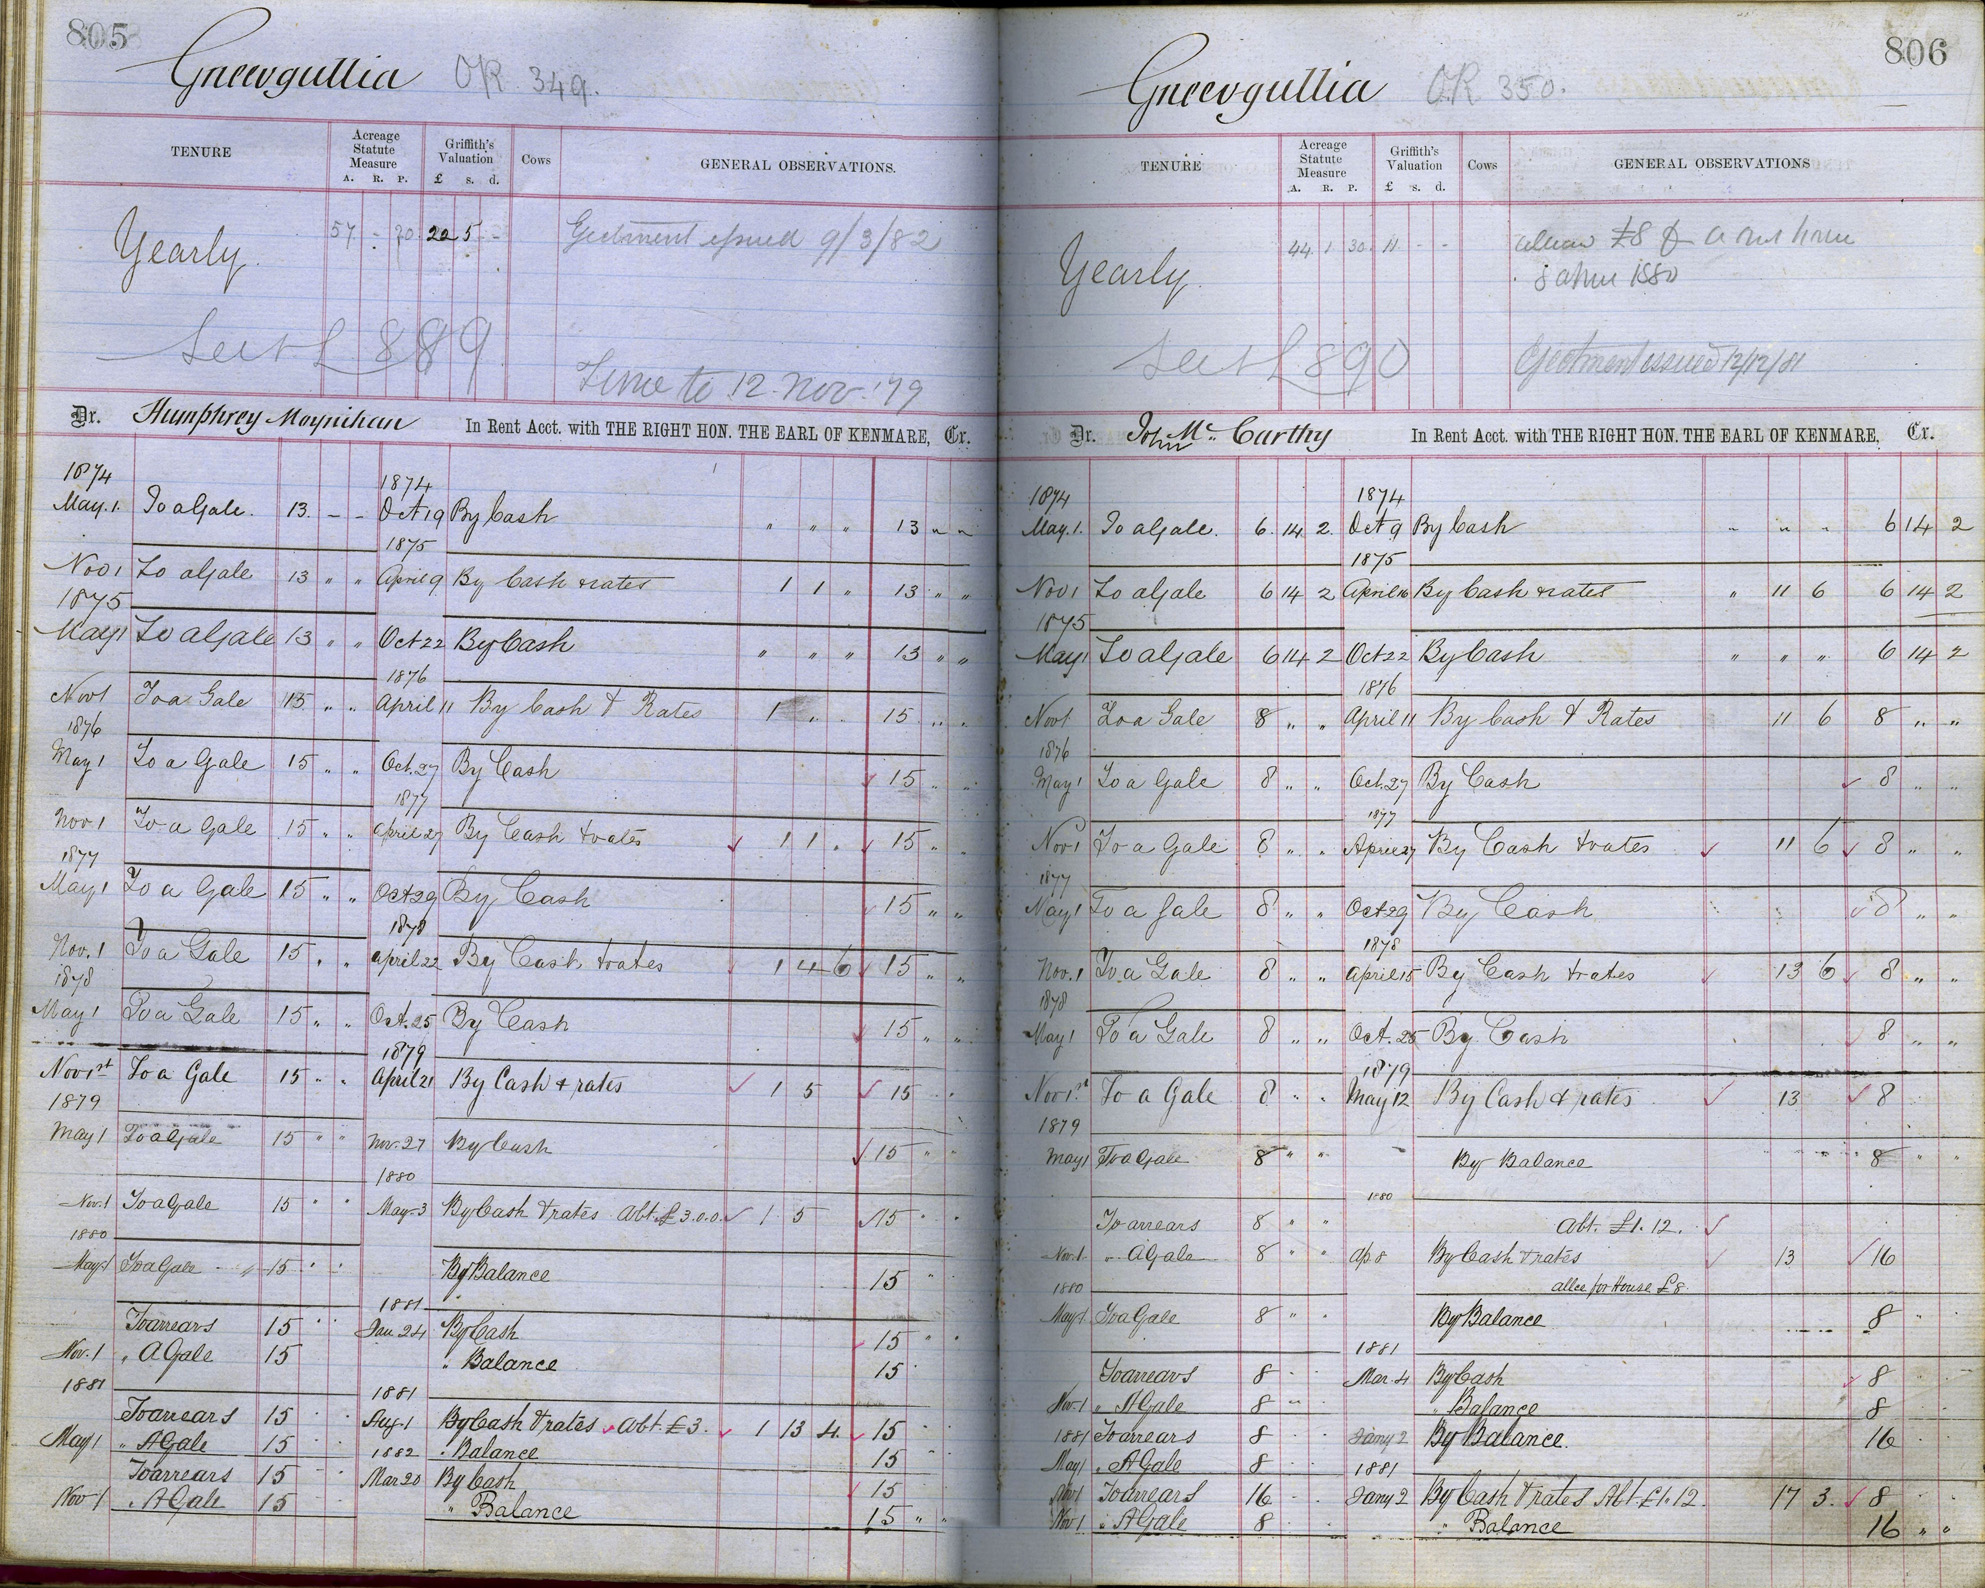 805
Gneevgullia OR 349.
TENURE
Acreage Statute Measure
A. R. P.
Griffith's Valuation
£ s. d.
Cows
GENERAL OBSERVATIONS.
Yearly. 57 - 20 22 5 - Ejectment issued 9/3/82
L 889
Time to 12 Nov. '79
Dr. Humphrey Moynihan In Rent Acct. with THE RIGHT HON. THE EARL OF KENMARE, Cr.
1874 1874
May. 1. To a Gale. 13. - - Oct 19 By Cash " " " 13 " "
1875
Nov 1 To a Gale 13 " " April 9 By Cash & rates 1 1 " 13 " "
1875
May 1 To a Gale 13 " " Oct 22 By Cash " " " 13 " "
1876
Nov 1 To a Gale 15 " " April 11 By Cash & Rates 1 " . 15 " .
1876
May 1 To a Gale 15 " " Oct. 27 By Cash 15 " "
1877
Nov. 1 To a Gale 15 " " April 27 By Cash & rates 1 1 . 15 " "
1877
May 1 To a Gale 15 " " Oct 29 By Cash 15 " "
1878
Nov. 1 To a Gale 15 " " April 22 By Cash & rates 1 4 6 15 " "
1878
May 1 To a Gale 15 " " Oct. 25 By Cash 15 " "
1879
Nov 1st To a Gale 15 " " April 21 By Cash & rates 1 5 15 " "
1879
May 1 To a Gale 15 " " Nov. 27 By Cash 15 " "
1880
Nov. 1 To a Gale 15 " " May 3 By Cash & rates Abt. £3.0.0. 1 5 15 " "
1880
May 1 To a Gale 15 " " By Balance 15 "
1881
To arrears 15 " " Jan 24 By Cash 15 " "
Nov. 1 " A Gale 15 " Balance 15
1881 1881
To arrears 15 Aug. 1 By Cash & rates Abt. £3. 1 13 4. 15
May 1 " A Gale 15 1882 " Balance 15
To arrears 15 Mar 20 By Cash 15
Nov 1 " A Gale 15 " Balance 15 " "
806
Gneevgullia O.R 350.
TENURE
Acreage Statute Measure
A. R. P.
Griffith's Valuation
£ s. d.
Cows
GENERAL OBSERVATIONS
Yearly. 44 1 30 11 - - £8
1880
L 890 Ejectment issued 12/12/81
Dr. John Mc. Carthy In Rent Acct. with THE RIGHT HON. THE EARL OF KENMARE, Cr.
1874 1874
May. 1. To a Gale. 6. 14. 2. Oct 9 By Cash " " " 6 14 2
1875
Nov 1 To a Gale 6 14 2 April 16 By Cash & rates " 11 6 6 14 2
1875
May 1 To a Gale 6 14 2 Oct 22 By Cash " " " 6 14 2
1876
Nov 1 To a Gale 8 " " April 11 By Cash & Rates 11 6 8 " "
1876
May 1 To a Gale 8 " " Oct. 27 By Cash 8 " "
1877
Nov 1 To a Gale 8 " " April 27 By Cash & rates 11 6 8 " "
1877
May 1 To a Gale 8 " " Oct 29 By Cash 8 " "
1878
Nov. 1 To a Gale 8 " " April 15 By Cash & rates 13 6 8 " "
1878
May 1 To a Gale 8 " " Oct. 25 By Cash 8 " "
1879
Nov 1st To a Gale 8 " " May 12 By Cash & rates 13 8
1879
May 1 To a Gale 8 " " - By Balance 8 " "
1880
To arrears 8 " " Abt. £1. 12.
Nov. 1 " A Gale 8 " " Ap 8 By Cash & rates 13 16
1880 allce for House £8.
May 1 To a Gale 8 " " By Balance 8 "
1881
To arrears 8 " Mar. 4 By Cash 8
Nov. 1 " A Gale 8 " " " Balance 8
1881 To arrears 8 Jany 2 By Balance. 16
May 1 " A Gale 8 1881
Nov 1 To arrears 16 Jany 2 By Cash & rates Abt £1. 12. 17 3. 8
Nov 1 " A Gale 8 " Balance 16 " "